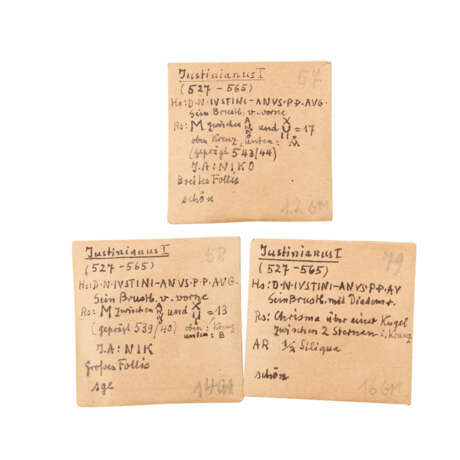 57
Justinianus I
(527-565)
Hs: D·N·IVSTINI-ANVS·P·P·AVG·
Sein Brustb. v. vorne
Rs: M zwischen ANNO und XUII = 17
oben Kreuz, unten:
(geprägt 543/44)
I.A: NIKO
Breites Follis
schön
12 GM
58
Justinianus I
(527-565)
Hs: D·N·IVSTINI-ANVS·P·P·AVG·
Sein Brustb. v. vorne
Rs: M zwischen ANNO und = 13
(geprägt 539/40) oben: Kreuz
unten: B
I.A: NIK
Großes Follis
sge
14 GM
79
Justinianus I
(527-565)
Hs: D·N·IVSTINI-ANVS·P·P·AV
Sein Brustb. mit Diadem r.
Rs: Chrisma über einer Kugel
zwischen 2 Sternen i. Kranz
AR 1/2 Siliqua
schön
16 GM